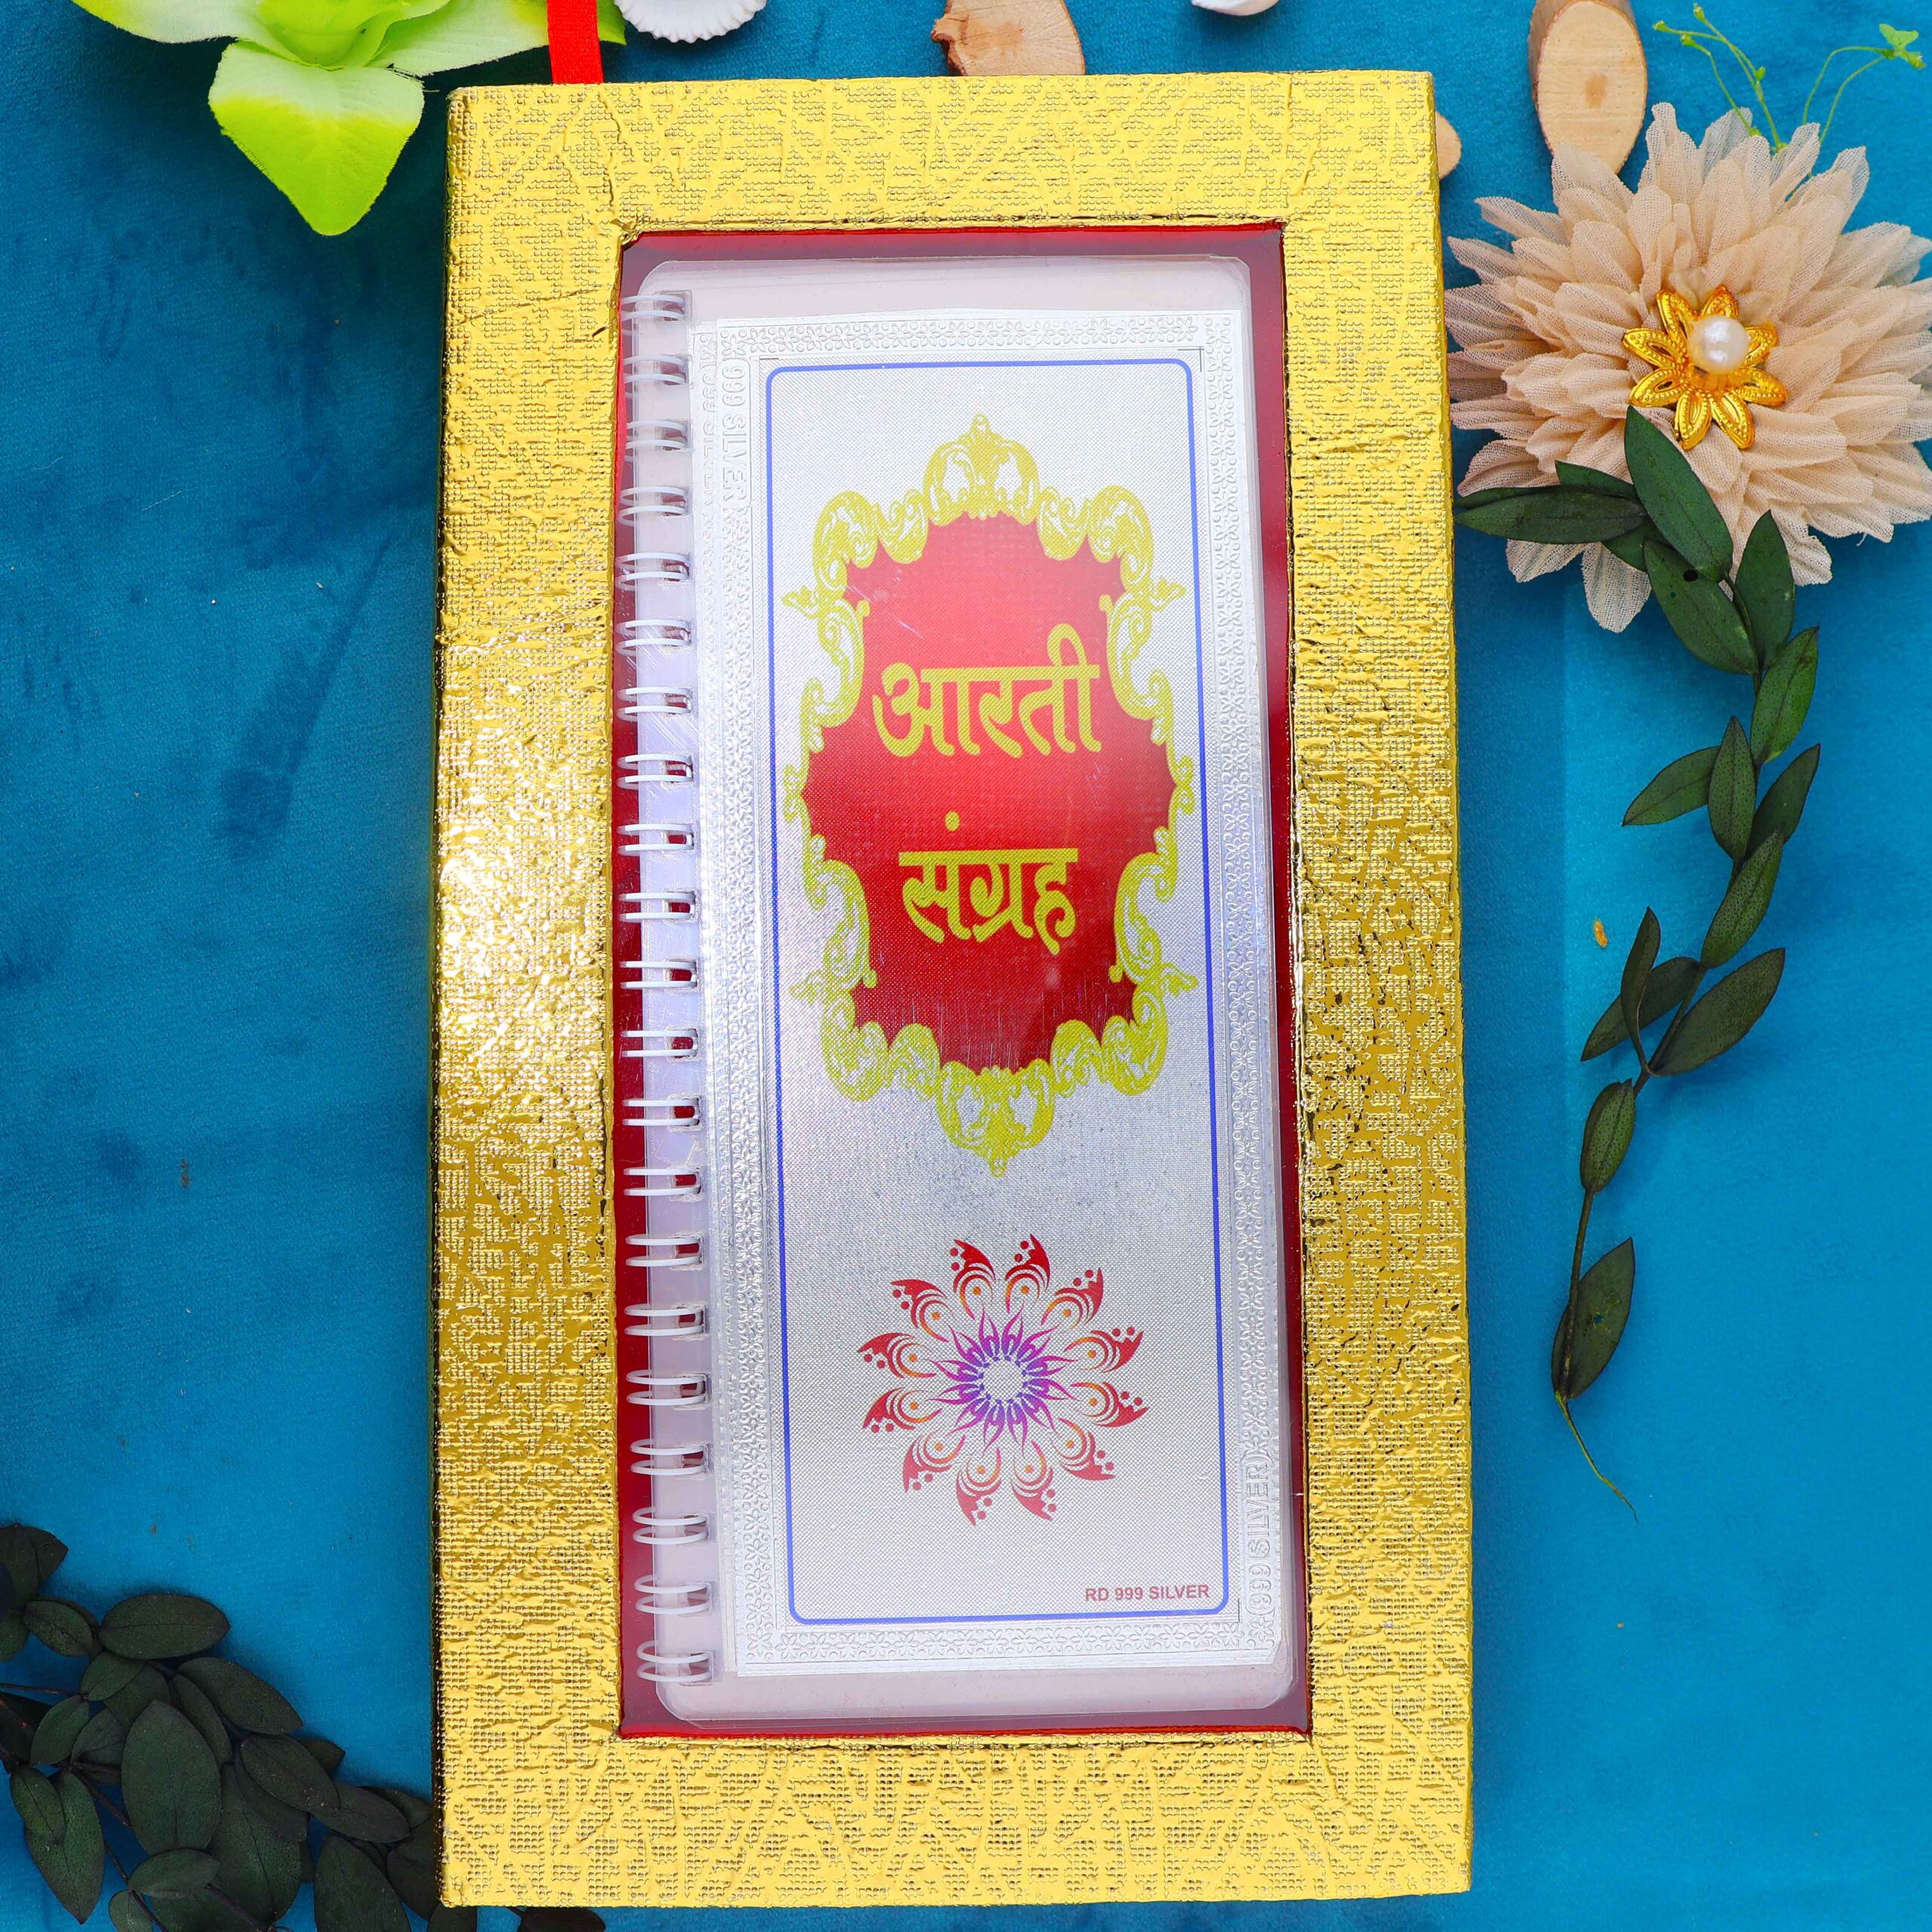 999 SILVER
आरती
संग्रह
RD 999 SILVER
(999 SILVER)